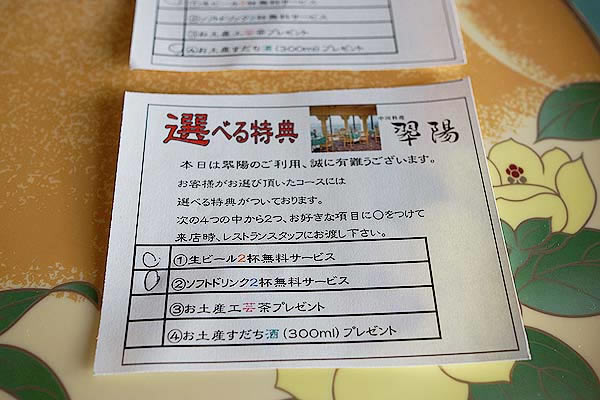 ②ソフトドリンク2杯無料サービス
③お土産工芸茶プレゼント
④お土産すだち酒(300ml)プレゼント
選べる特典
中国料理
翠陽
本日は翠陽のご利用、誠に有難うございます。
お客様がお選び頂いたコースには
選べる特典がついております。
次の4つの中から2つ、お好きな項目に○をつけて
来店時、レストランスタッフにお渡し下さい。
①生ビール2杯無料サービス
②ソフトドリンク2杯無料サービス
③お土産工芸茶プレゼント
④お土産すだち酒(300ml)プレゼント